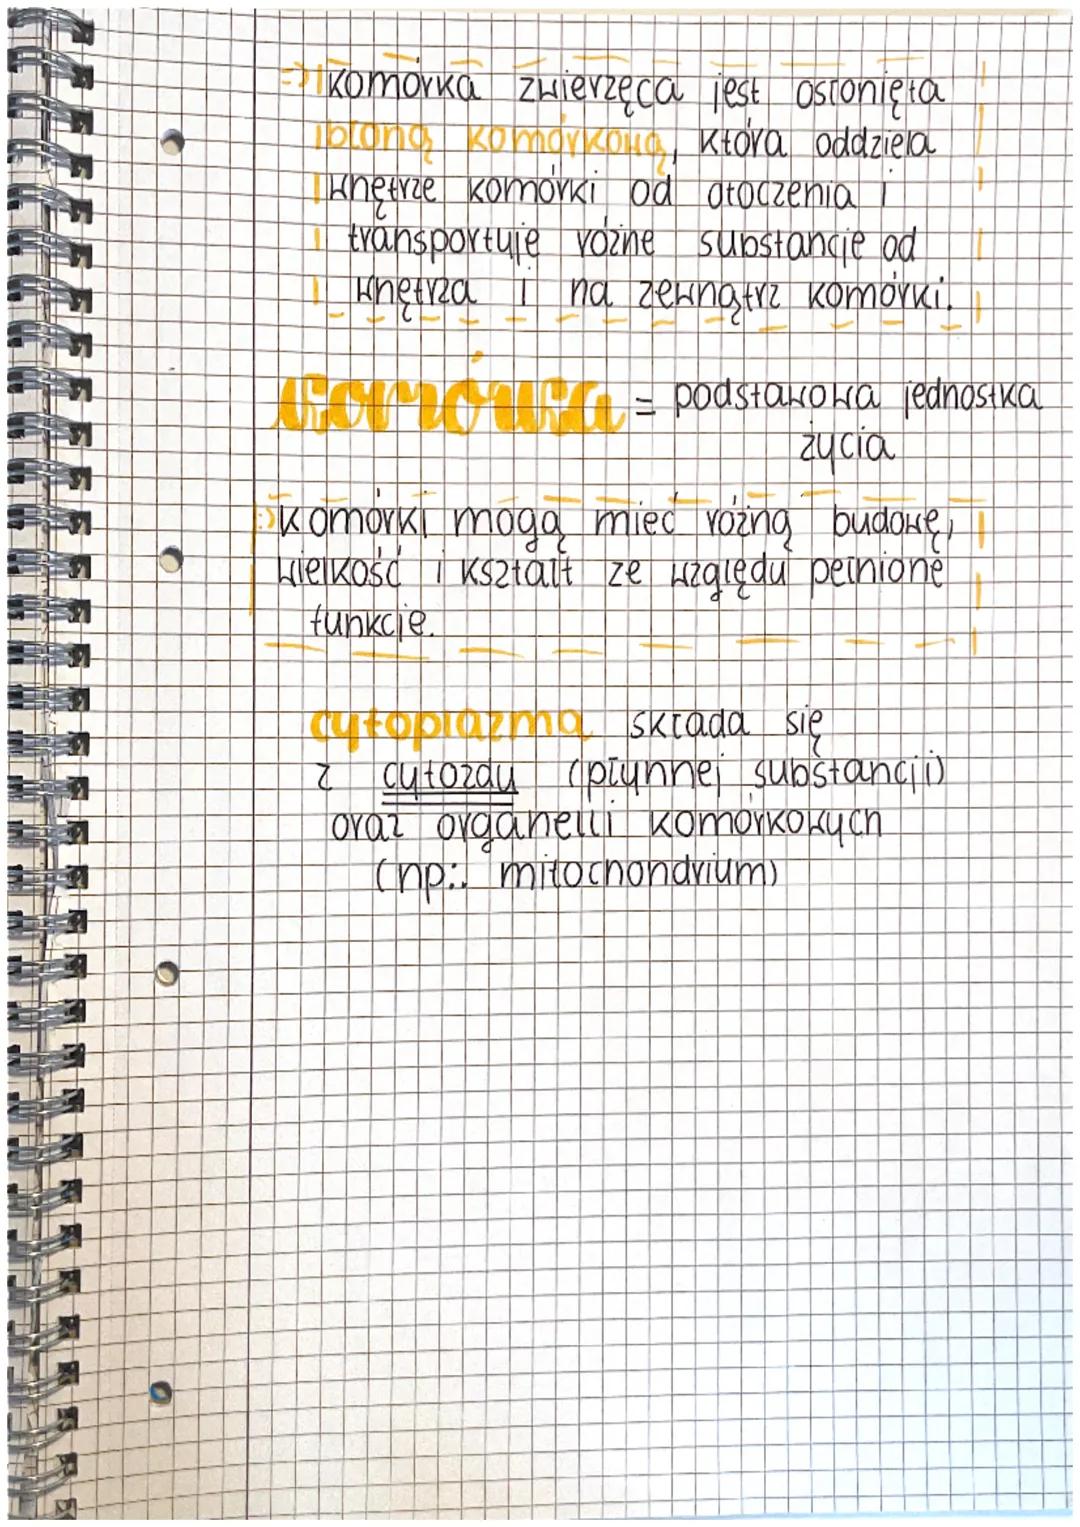 => komórka zwierzęca jest osłonięta
błoną komórkową, która oddziela
wnętrze komórki od otoczenia i
transportuje różne substancje od
wnętrza i na zewnątrz komórki.
komórka = podstawowa jednostka
życia
komórki mogą mieć rożną budowę,
wielkość i kształt ze względu pełnione
funkcje.
cytoplazma składa się
z cytozdu (płynnej substancji)
oraz organelli komórkowych
(np.: mitochondrium)